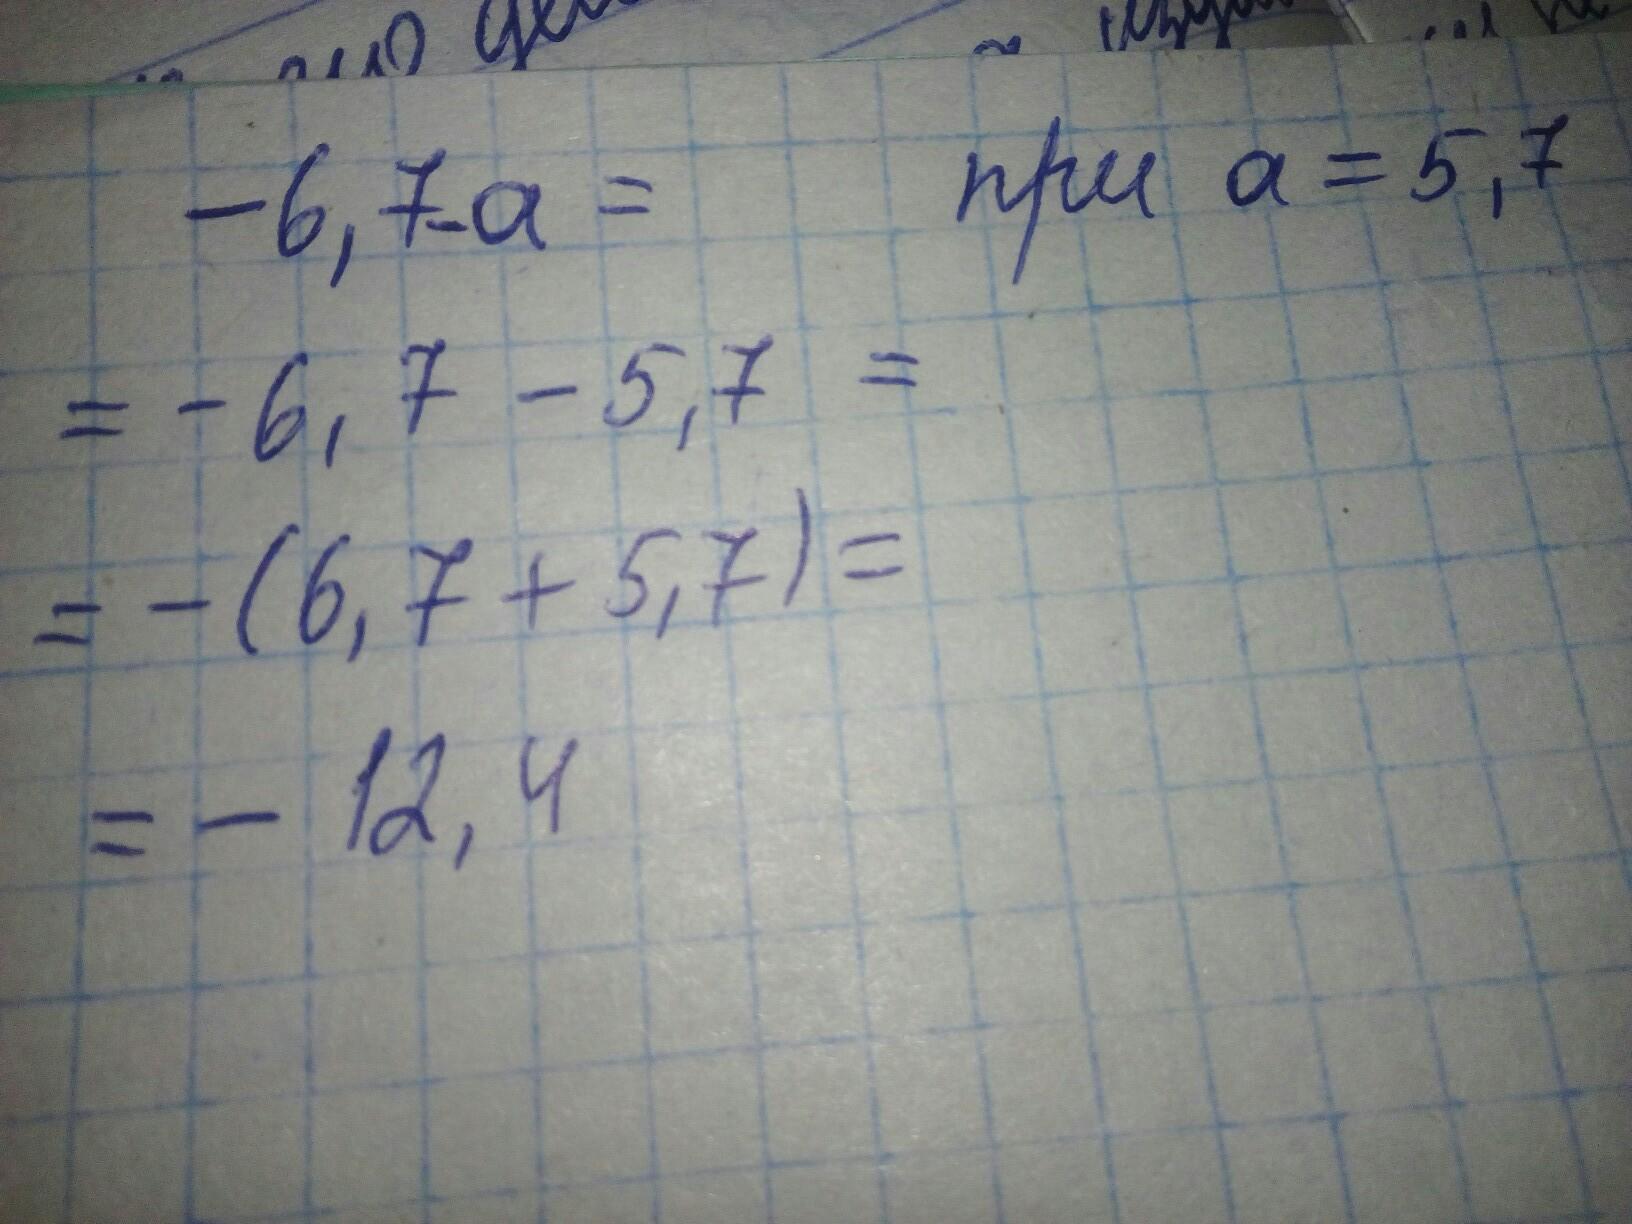 -6,7-a= при a=5,7
=-6,7-5,7=
=-(6,7+5,7)=
=-12,4